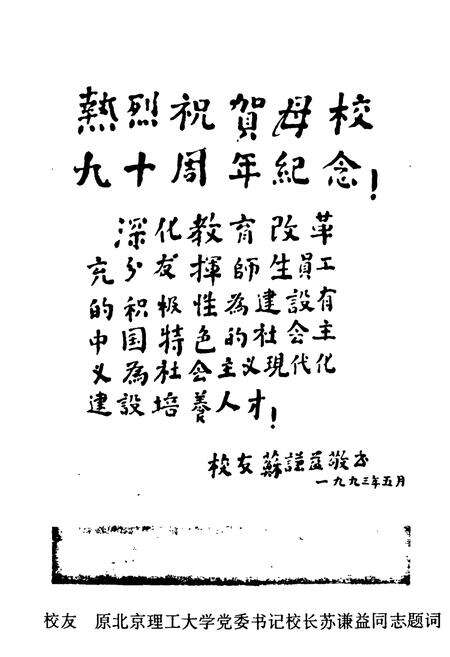 熱烈祝賀母校
九十周年紀念！
深化教育改革
充分发揮師生員工
的积极性為建設有
中国特色的社会主
义為社会主义現代化
建設培養人才！
校友蘇謙益敬书
一九九三年五月
校友 原北京理工大学党委书记校长苏谦益同志题词